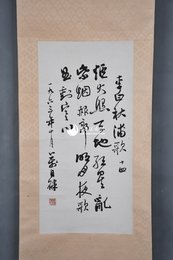 李白秋浦歌十四
炉火照天地紅星亂
紫烟赧郎明月夜歌
曲動寒川
一九六三年十月